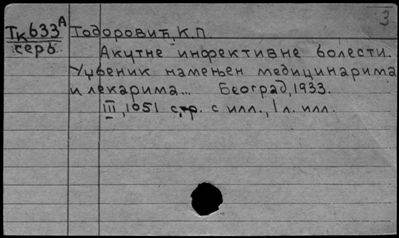 3
Тк633А Тодоровић, К.П.
серб. Акутне инфективне болести.
Уџбеник намењен медицинарима
и лекарима... Београд, 1933.
III, 1051 стр. с илл., 1 л. илл.